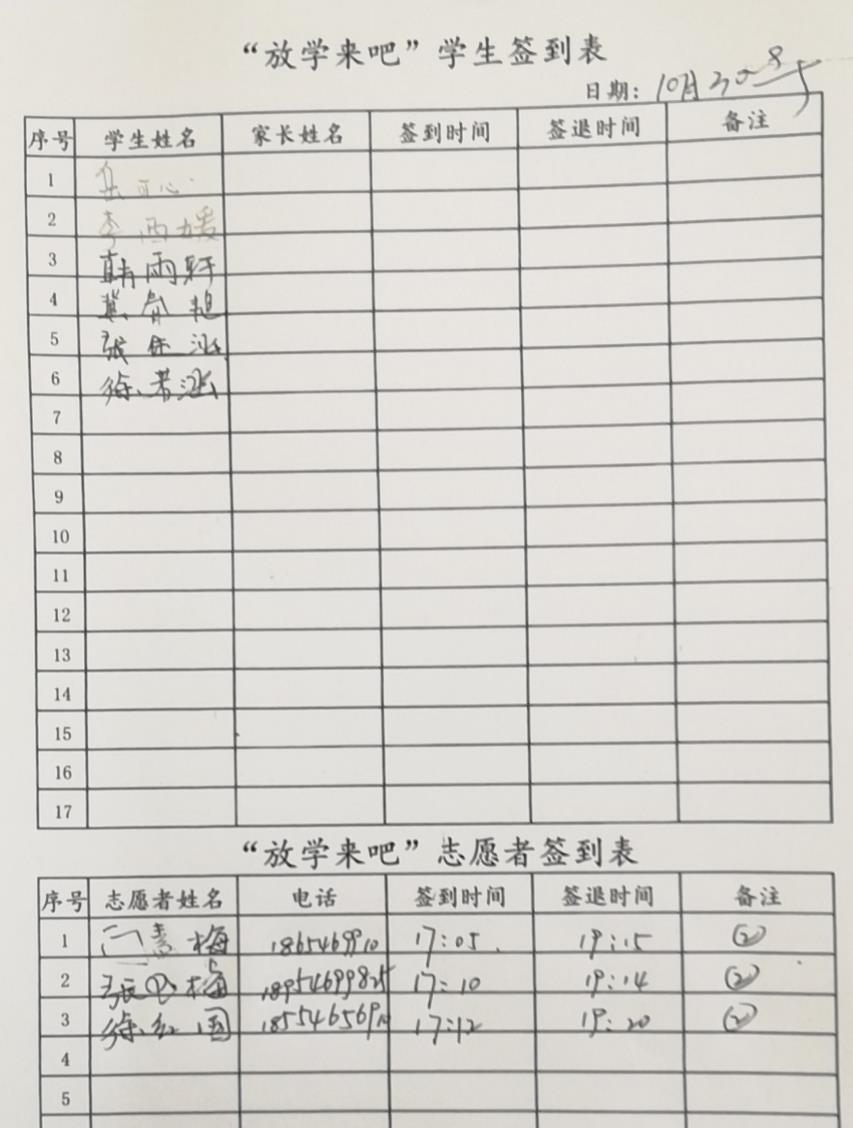 “放学来吧”学生签到表
日期：10月30
序号 学生姓名 家长姓名 签到时间 签退时间 备注
1 可心
2 李西媛
3 韩雨轩
4
5 张 涵
6 徐若涵
7
8
9
10
11
12
13
14
15
16
17
“放学来吧”志愿者签到表
序号 志愿者姓名 电话 签到时间 签退时间 备注
1 梅 17:05 19:15 ②
2 张 梅 18954699825 17:10 19:14 ②
3 徐红国 17:12 19:20 ②
4
5